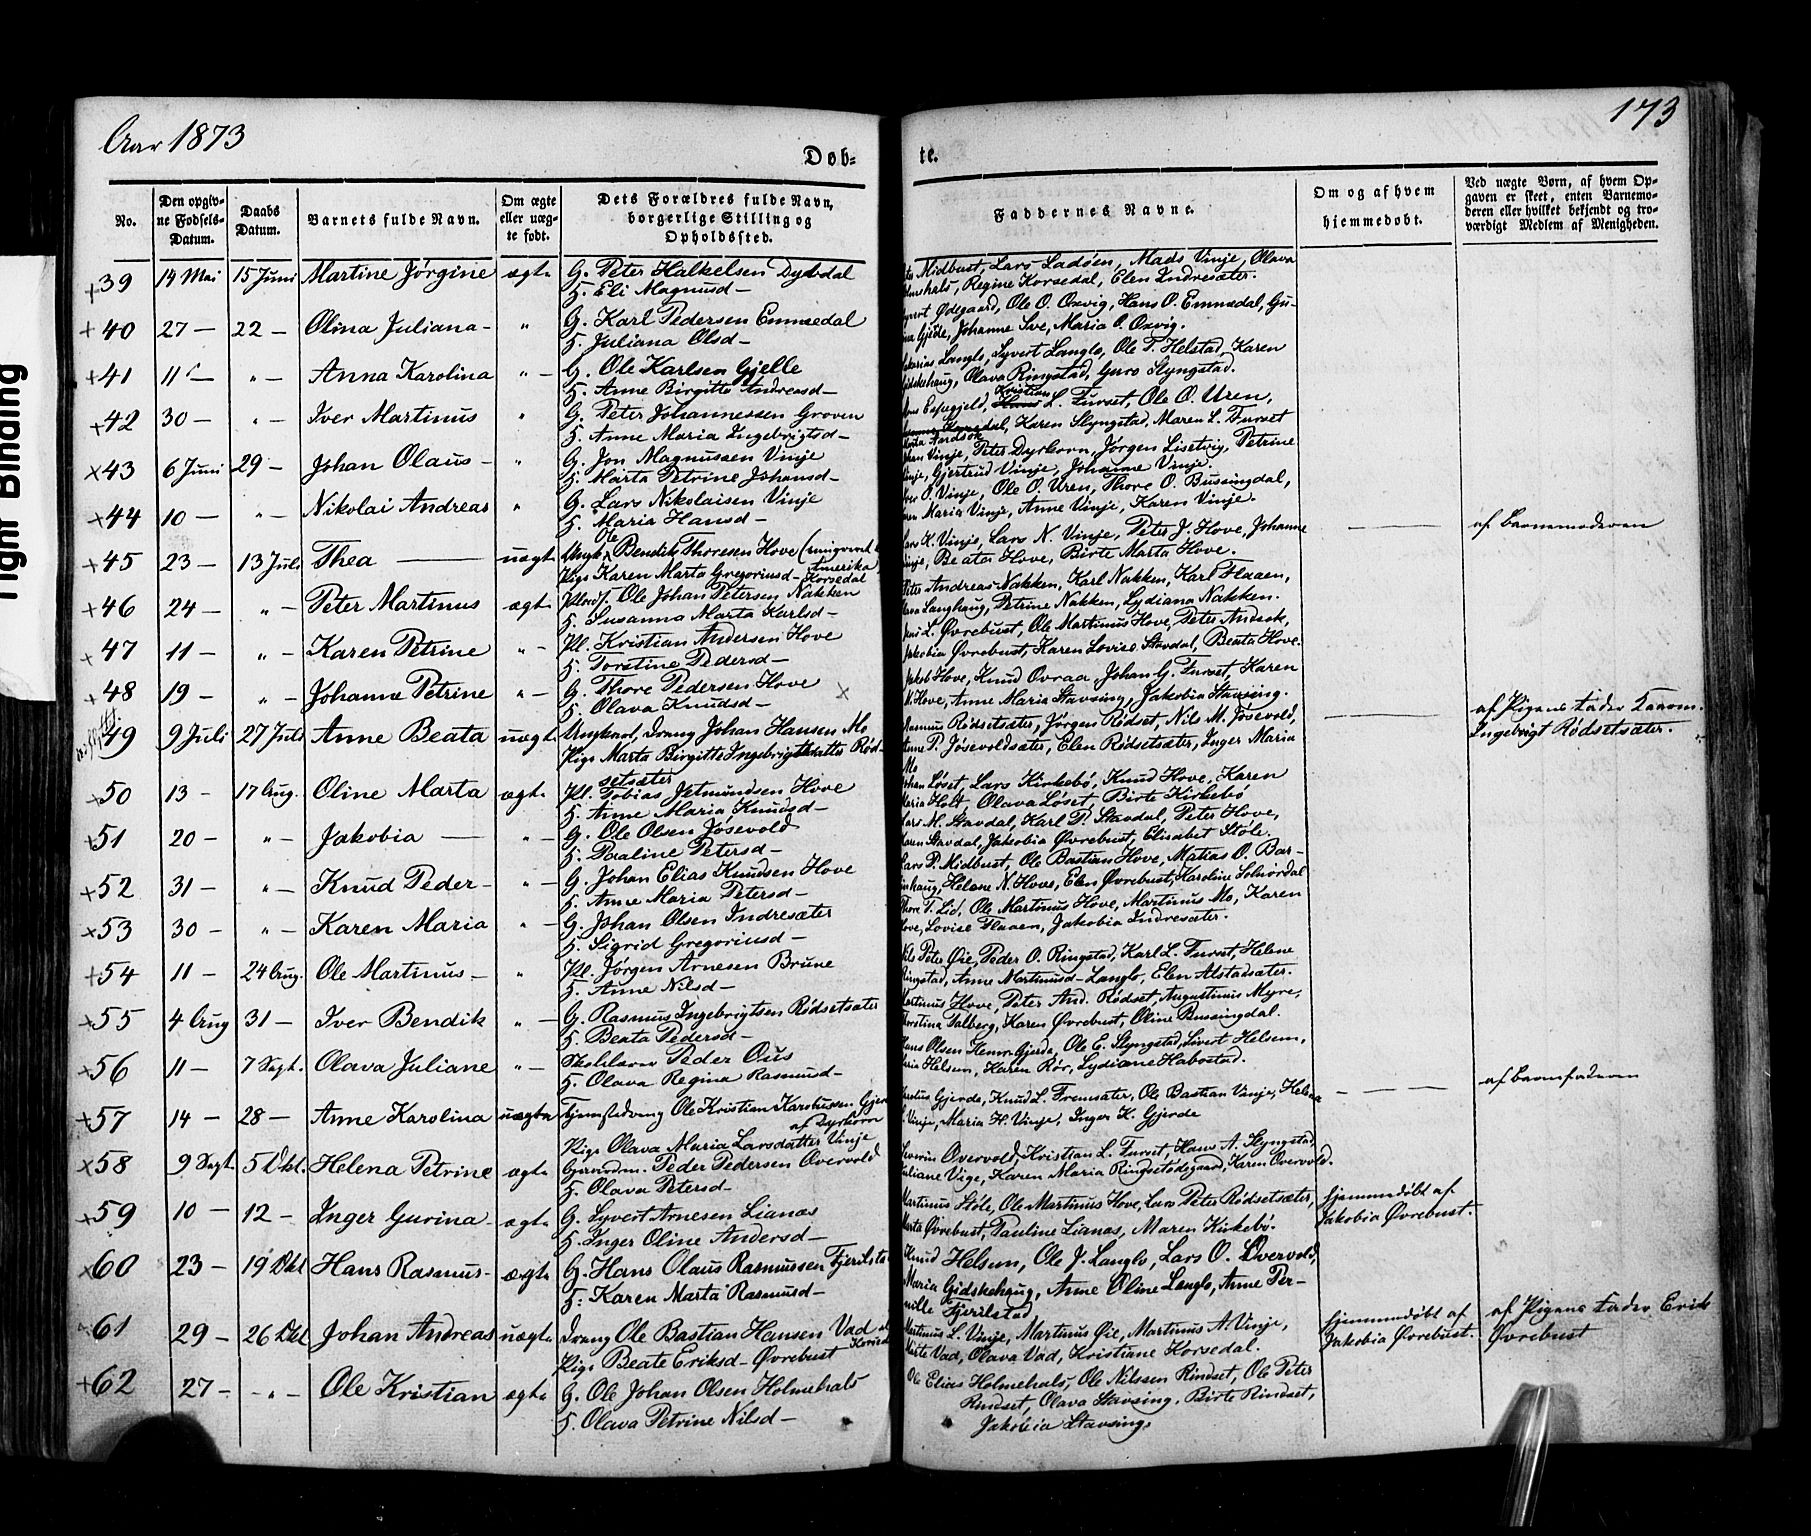 Aar 1873
173
Døb=
te.
No.
Den opgiv-
ne Fødsels-
Datum.
Daabs
Datum.
Barnets fulde Navn.
Om ægte
eller uæg-
te født.
Dets Forældres fulde Navn,
borgerlige Stilling og
Opholdssted.
Faddernes Navne.
Om og af hvem
hjemmedøbt.
Ved uægte Børn, af hvem Op-
gaven er skeet, enten Barnemo-
deren eller hvilket bekjendt og tro-
værdigt Medlem af Menigheden.
39 14 Mai 15 Juni Martine Jørgine ægte G. Peter Halkelsen Dyrdal
H. Eli Magnusd-
Midbust, Lars Ladøen, Mads Vinje, Olava
Regine Korsedal, Elen Indresæter.
40 27 - 22 - Olina Juliana- " G. Karl Pedersen Emnedal
H. Juliana Olsd-
Ødegaard, Ole O. Oxvig, Hans O. Emnedal, Gu-
Gjerde, Johanne Sve, Maria O. Oxvig.
41 11 - " - Anna Karolina " - G. Ole Karlsen Gjelle
H. Anne Birgitte Andreasd-
Langlo, Syvert Langlo, Ole P. Helstad, Karen
Gidskehaug, Olava Ringstad, Guro Slyngstad.
42 30 - " - Iver Martinus " G. Peter Johannessen Groven
H. Anne Maria Ingebrigtsd-
Kristian
L. Furset, Ole O. Uren,
Karen Slyngstad, Maren L. Furset
43 6 Juni 29 - Johan Olaus - " G. Jon Magnussen Vinje
H. Marta Petrine Johansd-
Vinje, Peter Dyrkorn, Jørgen Lisetvig, Petrine
Vinje, Gjertrud Vinje, Johanne Vinje.
44 10 - " - Nikolai Andreas " G. Lars Nikolaisen Vinje
H. Maria Hansd-
O. Vinje, Ole O. Uren, Thore O. Bussingdal,
Maria Vinje, Anne Vinje, Karen Vinje.
45 23 - 13 Juli Thea uægte Ungk. Ole Bendik Thoresen Hove
Pige Karen Marta Gregoriusd- Korsedal
Amerika
K. Vinje, Lars N. Vinje, Peter J. Hove, Johanne
Vinje, Beate Hove, Birte Marta Hove.
af Barnemoderen
46 24 - " - Peter Martinus ægte Ole Johan Petersen Nakken
H. Susanna Marta Karlsd-
Peter Andreas Nakken, Karl Nakken, Karl Flaaen,
Langhaug, Petrine Nakken, Lydiana Nakken.
47 11 - " - Karen Petrine " - Pl. Kristian Andersen Hove
H. Torstine Pedersd-
L. Øvrebust, Ole Martinus Hove, Peter Andsok,
Jakobia Øvrebust, Karen Lovise Stavdal, Beata Hove.
48 19 - " - Johanne Petrine " - G. Thore Pedersen Hove
H. Olava Knudsd-
Jakob Hove, Knud Ovraa, Johan G. Furset, Karen
N. Hove, Anne Maria Stavsing, Jakobia Stavsing.
49 9 Juli 27 Juli Anne Beata uægte Ungkarl, Dreng Johan Hansen Mo
Pige Marta Birgitte Ingebrigtsdatter Rød-
setsæter
Rasmus Rødsetsæter, Jørgen Rødset, Nils M. Jøsevold,
P. Jøsevoldsæter, Elen Rødsetsæter, Inger Maria
Mo
af Pigens Fader
Ingebrigt Rødsetsæter.
50 13 - 17 Aug. Oline Marta ægte Pl. Tobias Jetmundsen Hove
H. Anne Maria Knudsd-
Johan Løset, Lars Kirkebø, Knud Hove, Karen
Maria Holt, Olava Løset, Birte Kirkebø
51 20 - " - Jakobia " - G. Ole Olsen Jøsevold
H. Pauline Petersd-
Lars M. Stavdal, Karl P. Stavdal, Peter Hove,
Karen Stavdal, Jakobia Øvrebust, Elisabet Støle.
52 31 - " - Knud Peder- " - G. Johan Elias Knudsen Hove
H. Anne Maria Petersd-
Lars P. Midbust, Ole Bastian Hove, Matias O. Bar-
Helene N. Hove, Elen Øvrebust, Karoline Solnørdal
53 30 - " - Karen Maria " - G. Johan Olsen Indresæter
H. Sigrid Gregoriusd-
Thore T. Lid, Ole Martinus Hove, Martinus Mo, Karen
Hove, Lovise Flaaen, Jakobia Indresæter.
54 11 - 24 Aug. Ole Martinus- " Pl. Jørgen Arnesen Brune
H. Anne Nilsd-
Nils Peter Øie, Peder O. Ringstad, Karl L. Furset, Helene
Ringstad, Anne Martinusd- Langlo, Elen Alstadsæter.
55 4 Aug 31 - Iver Bendik " - G. Rasmus Ingebrigtsen Rødsetsæter
H. Beata Pedersd-
Martinus Hove, Peter And. Rødset, Augustinus Myre,
Karen Øvrebust, Oline Bussingdal.
56 11 - 7 Sept. Olava Juliane " - Skolelærer Peder Ous
H. Olava Regina Rasmusd-
Hans Olsen Gjerde, Ole E. Slyngstad, Sivert Helsem,
Helsem, Karen Rør, Lydiane Habostad.
57 14 - 28 - Anne Karolina uægte Tjenestedreng Ole Kristian Karstussen Gjerde
af Dyrkorn
Pige Olava Maria Larsdatter Vinje
Gjerde, Knud L. Fremsæter, Ole Bastian Vinje, Helena
Vinje, Maria H. Vinje, Inger K. Gjerde
af Barnefaderen
58 9 Sept. 5 Okt. Helena Petrine ægte Gaardm. Peder Pedersen Overvold
H. Olava Petersd-
Severin Overvold, Kristian L. Furset, Hans A. Slyngstad,
Juliane Vige, Karen Maria Ringsetødegaard, Karen Overvold.
59 10 - 12 - Inger Gurina- ægte G. Syvert Arnesen Lianes
H. Inger Oline Andersd-
Martinus Støle, Ole Martinus Hove, Lars Peter Rødsetsæter,
Marta Øvrebust, Pauline Lianes, Maren Kirkebø.
hjemmedøbt af
Jakobia Øvrebust.
60 23 - 19 Okt Hans Rasmus- ægte G. Hans Olaus Rasmussen Fjerilstad
H. Karen Marta Rasmusd-
Knud Helsem, Ole J. Langlo, Lars O. Overvold,
Maria Gidskehaug, Anne Oline Langlo, Anne Per-
nille Fjerilstad
61 29 - 26 Okt Johan Andreas uægte Dreng Ole Bastian Hansen Vad
Pige Beate Eriksd- Øvrebust
Martinus L. Vinje, Martinus Øie, Martinus A. Vinje,
Marte Vad, Olava Vad, Kristiane Korsedal.
hjemmedøbt af
Jakobia Øvrebust.
af Pigens Fader Erik
Øvrebust
62 27 - - " - Ole Kristian ægte G. Ole Johan Olsen Holmehals
H. Olava Petrine Nilsd-
Ole Elias Holmehals, Ole Nilssen Rindset, Ole Peter
Rindset, Olava Stavsing, Birte Rindset,
Jakobia Stavsing.
Tight Binding